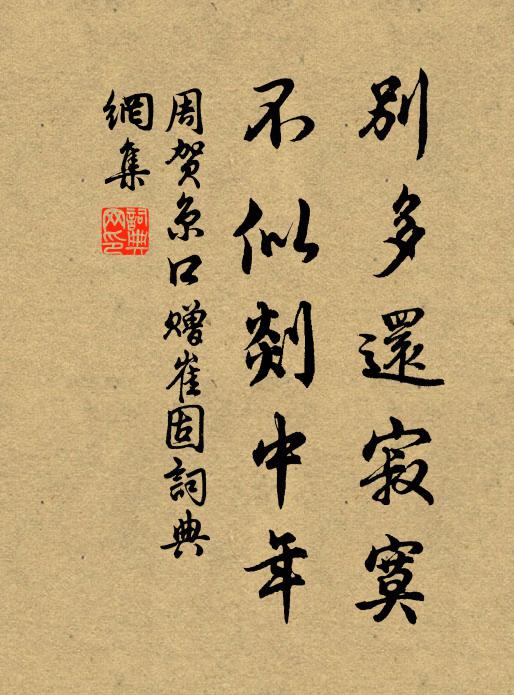 別多還寂寞
不似剡中年
周賀京口贈崔固詞典
網集
詞典
网印